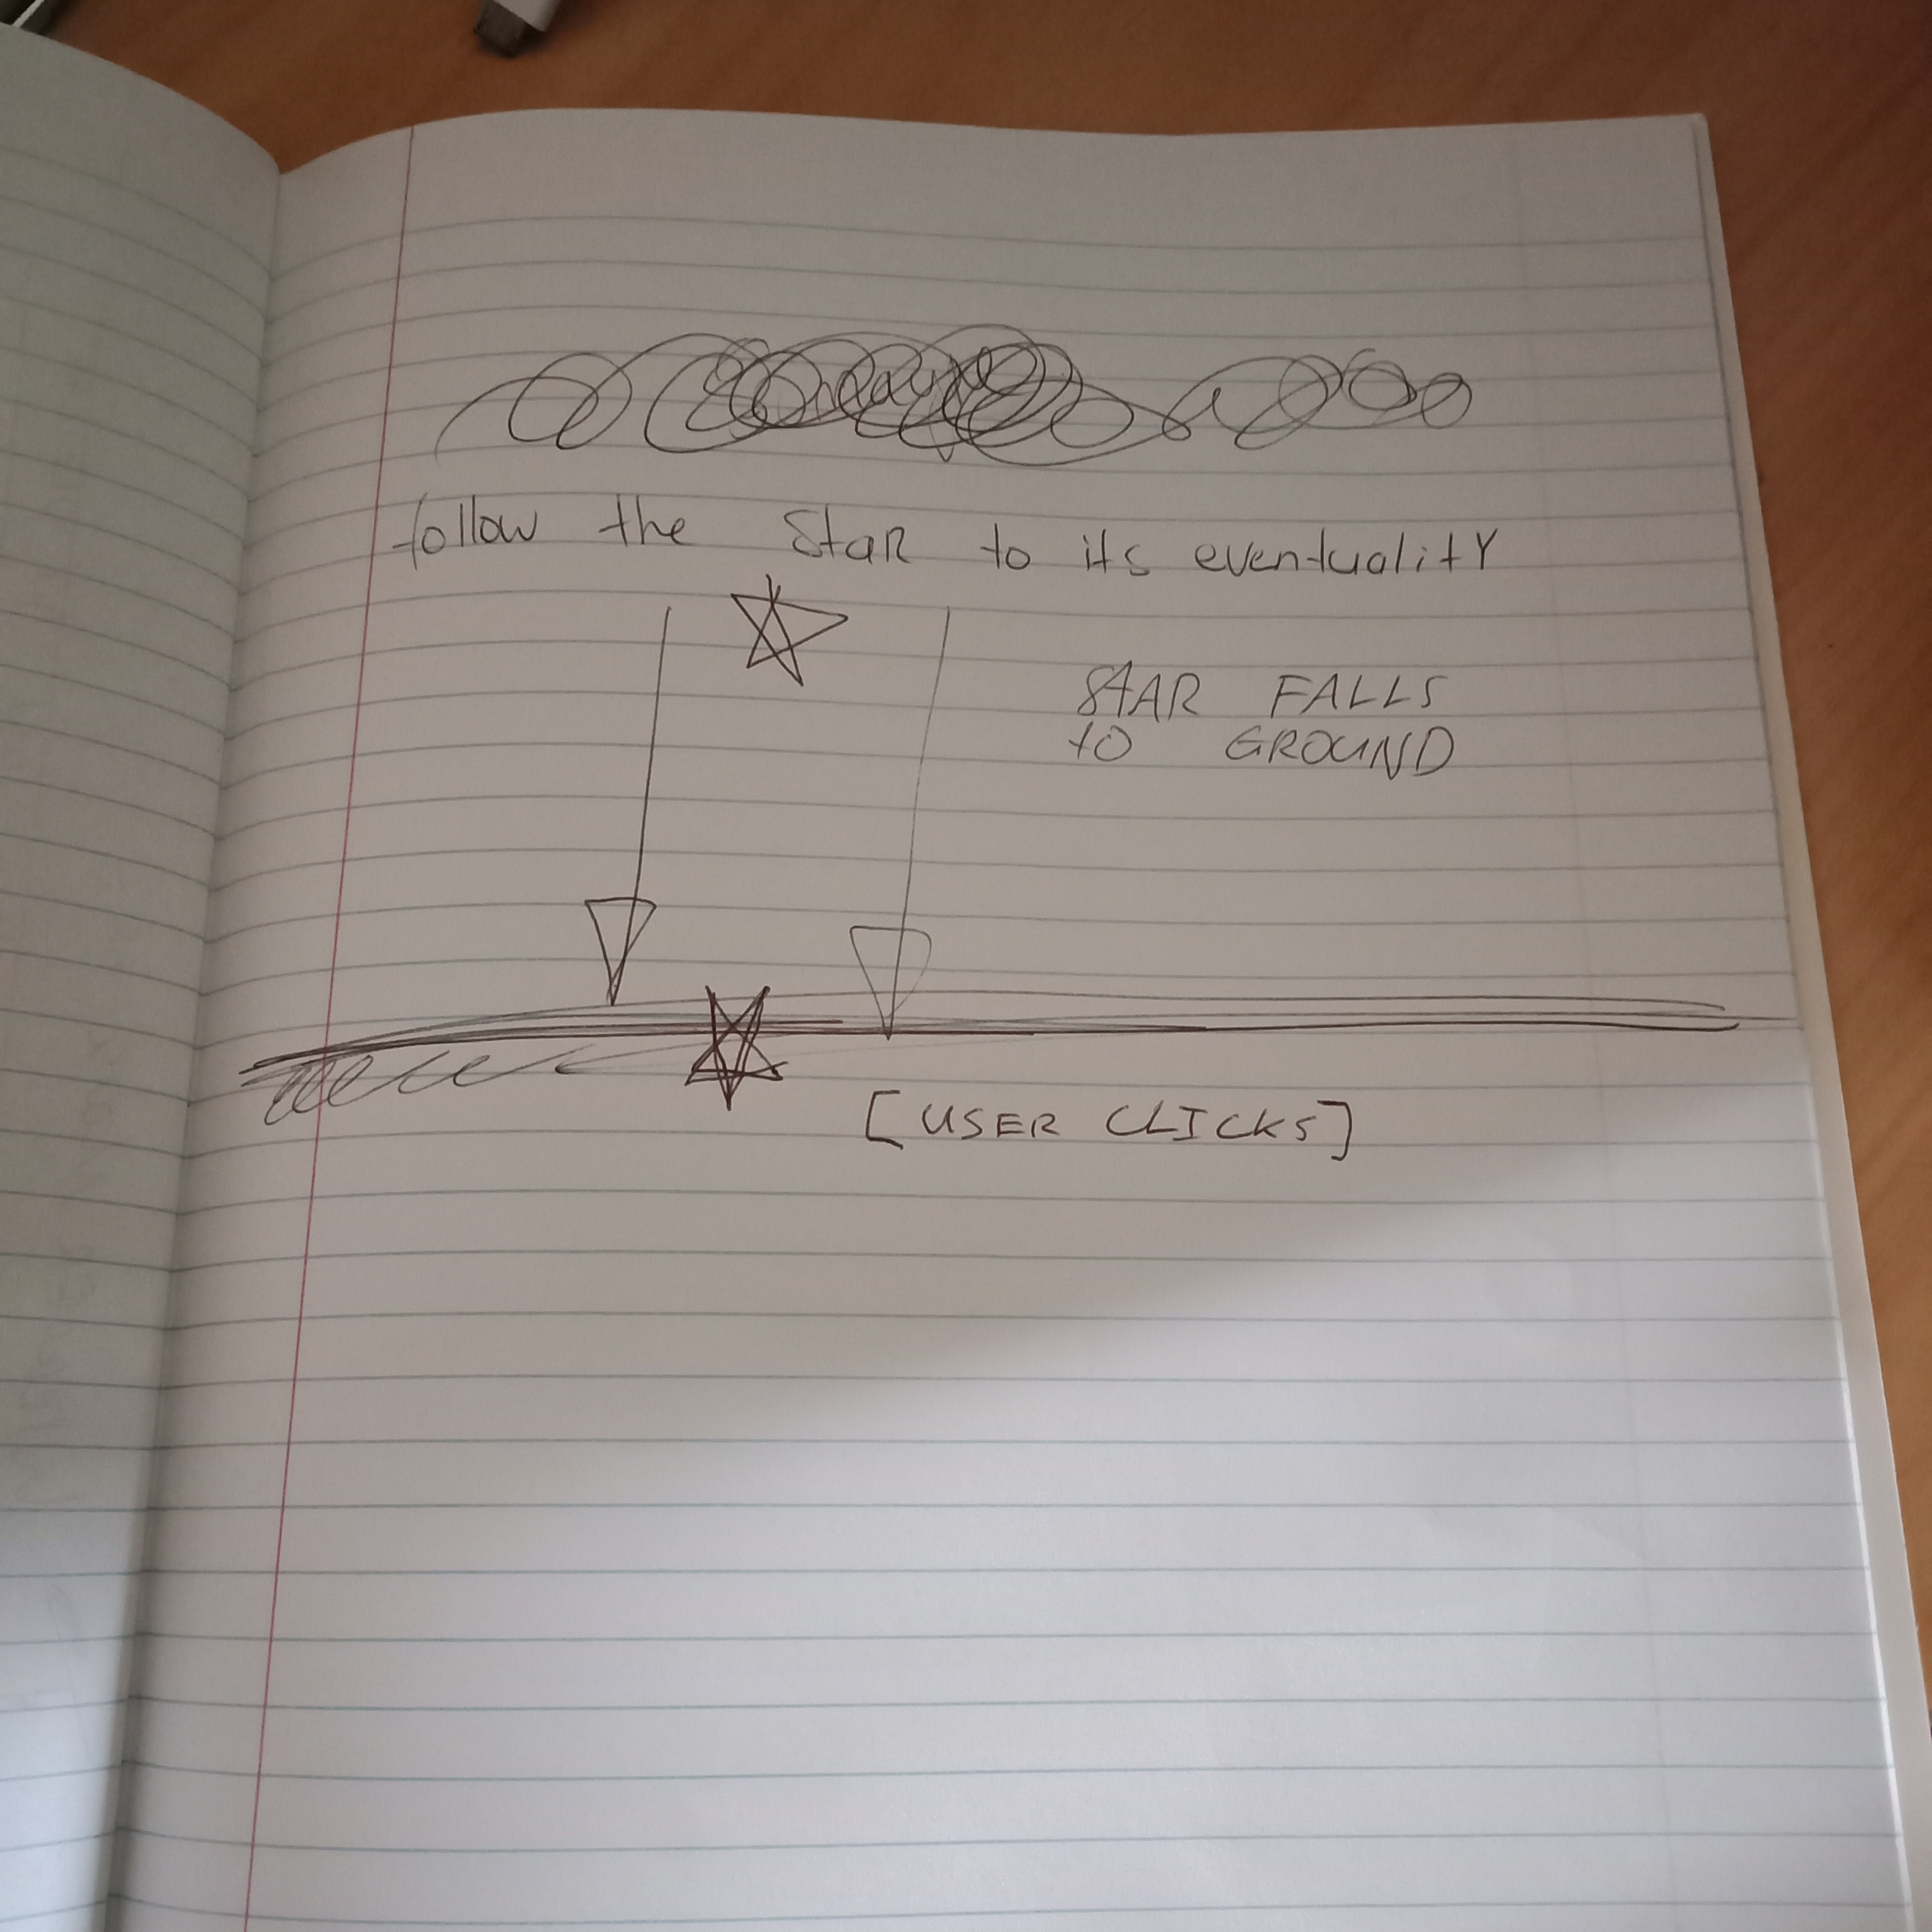 follow the Star to its eventuality
STAR FALLS
to GROUND
[USER CLICKS]